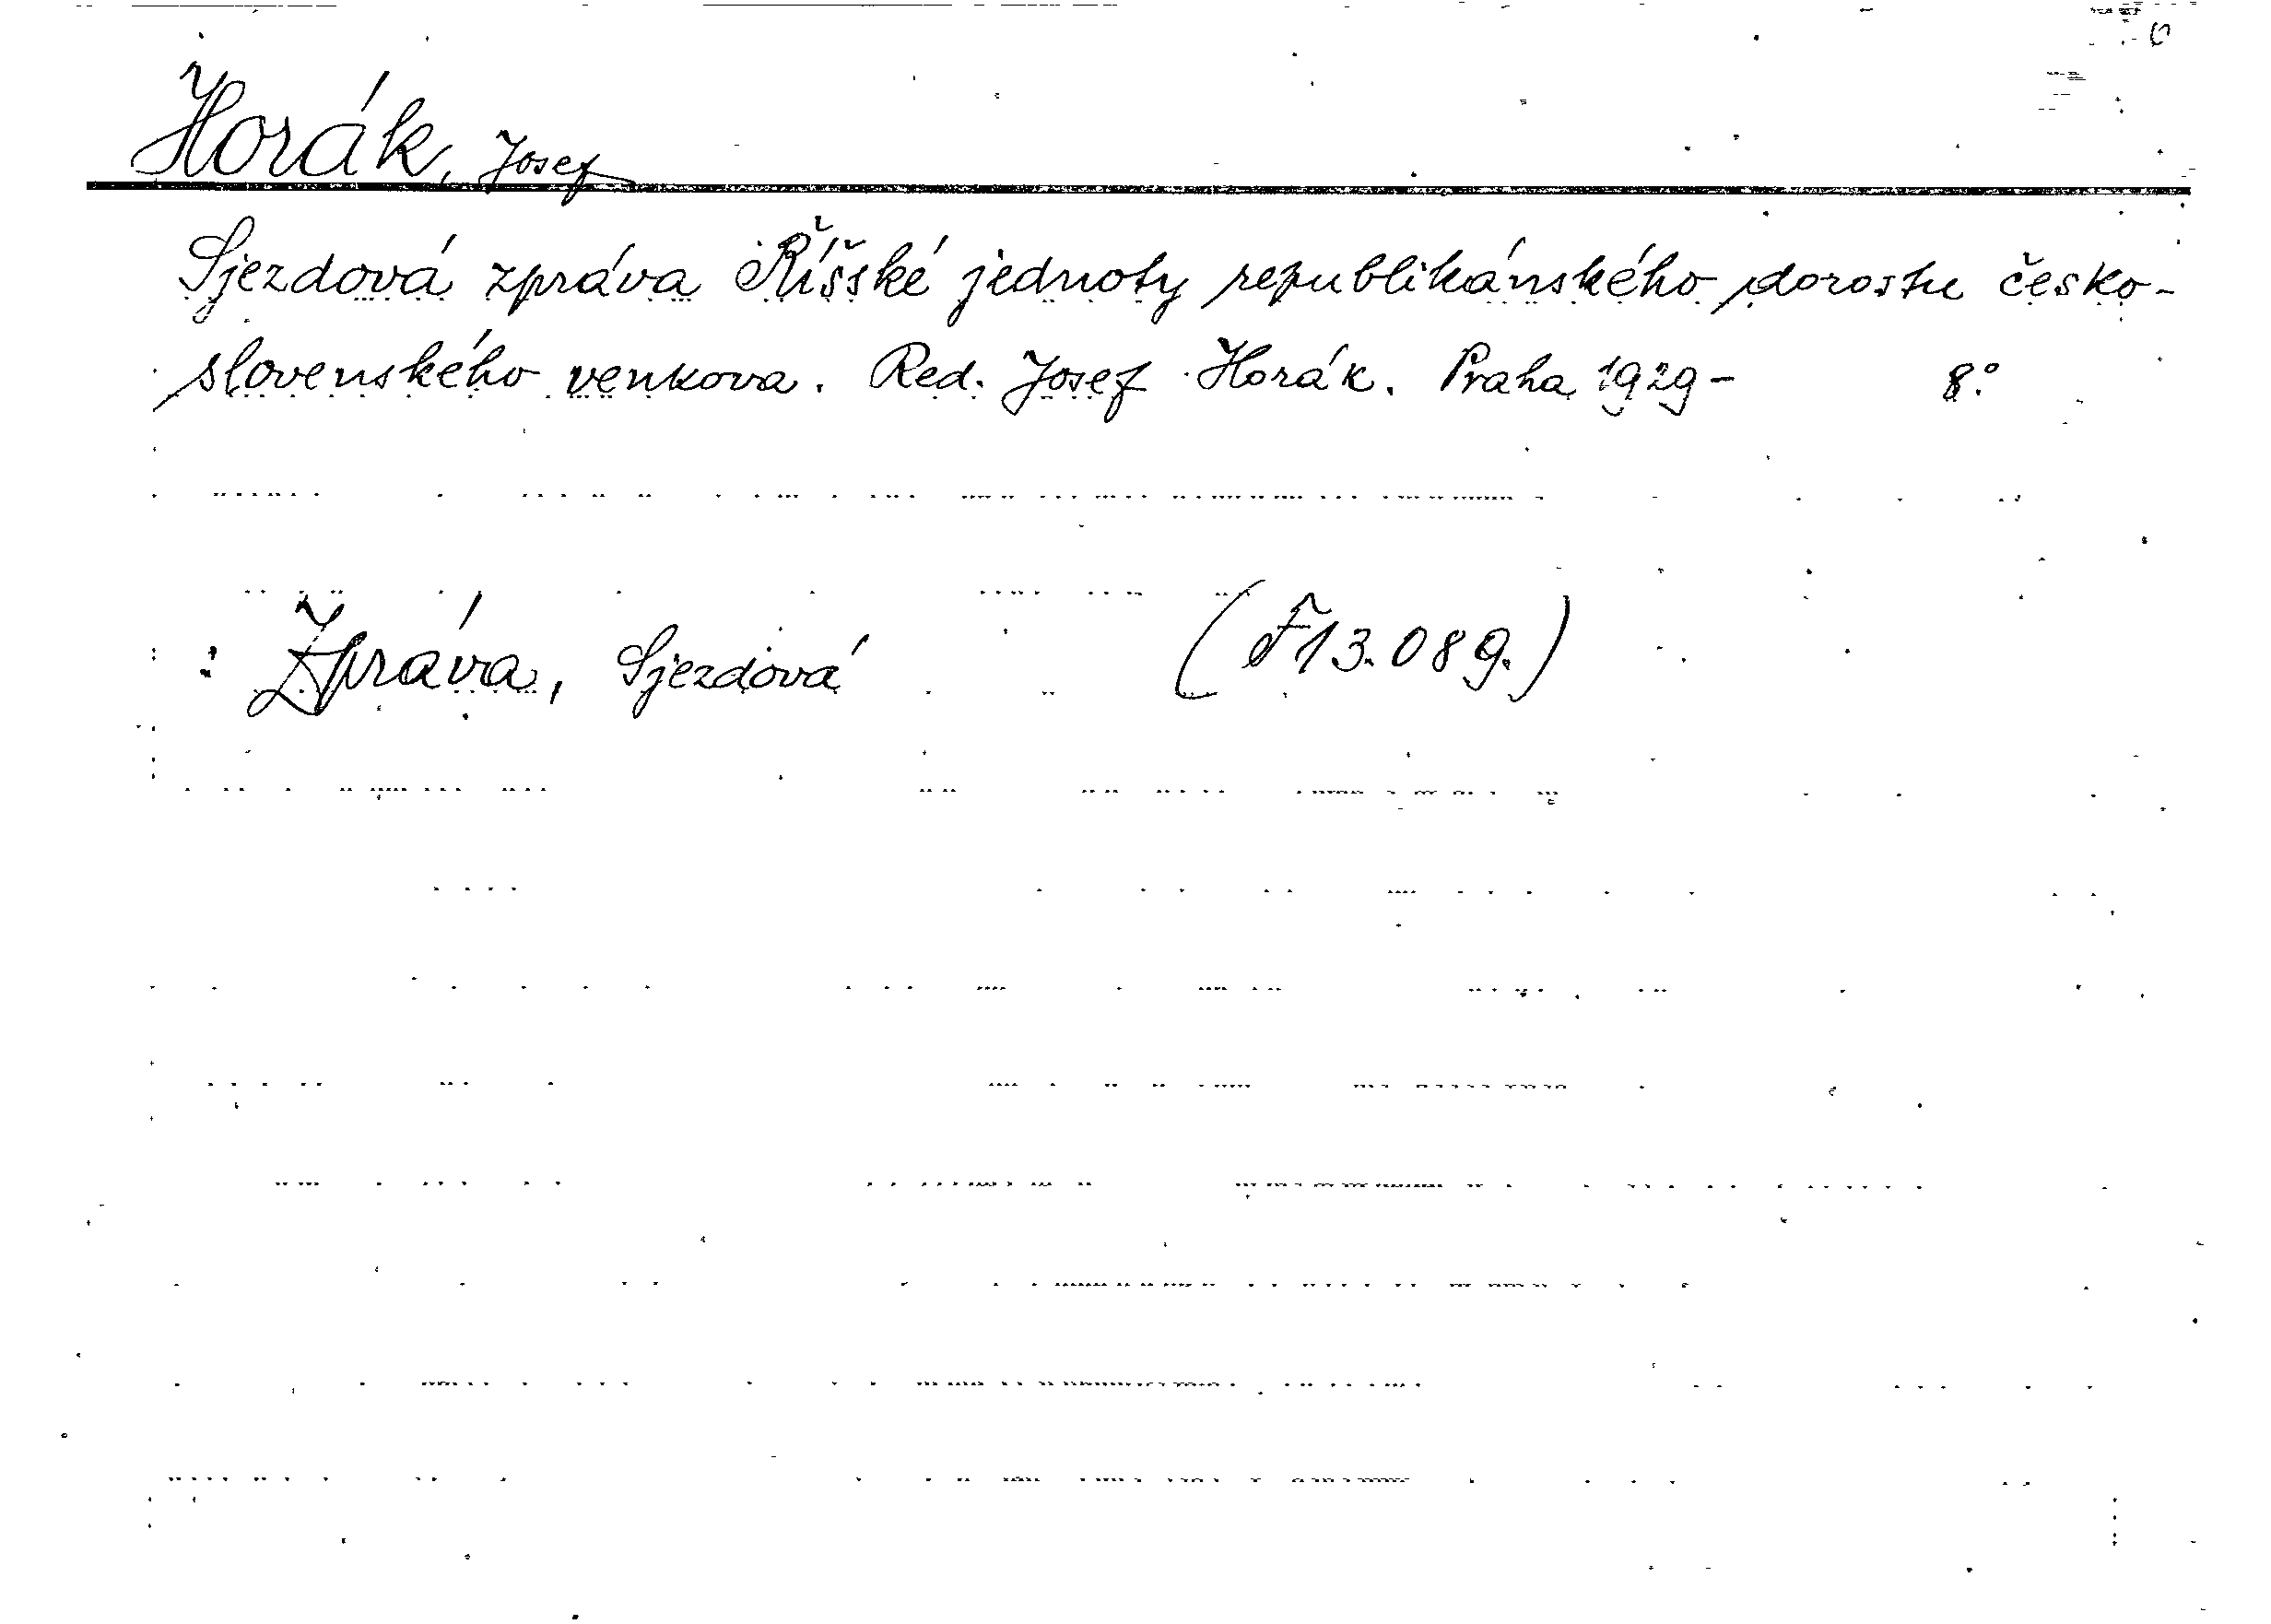 Horák, Josef
Sjezdová zpráva Říšské jednoty republikánského dorostu česko-
slovenského venkova. Red. Josef Horák. Praha 1929- 8°
: Zpráva, Sjezdová (F 13.089.)